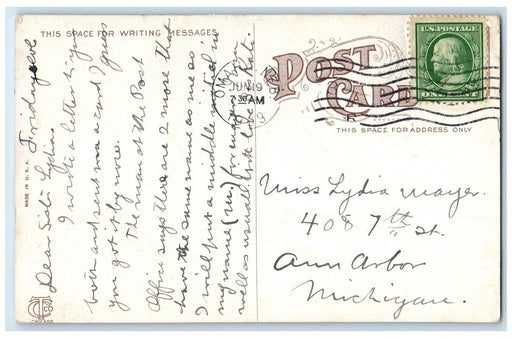 THIS SPACE FOR WRITING MESSAGES
Friday eve
Dear Sister Lydia:
I wrote a letter to you
both and sent ma a card I guess
you got it by now.
The man at the Post
Office says there are 2 more that
have the same name as me so
I will put a middle initial in
my name (W.) for mail from you
well as usual with love Kate.
MADE IN U.S.A.
JUN 19
AM
POST
CARD
THIS SPACE FOR ADDRESS ONLY
U.S. POSTAGE
ONE CENT
Miss Lydia Mayer.
408 7th St.
Ann Arbor
Michigan.